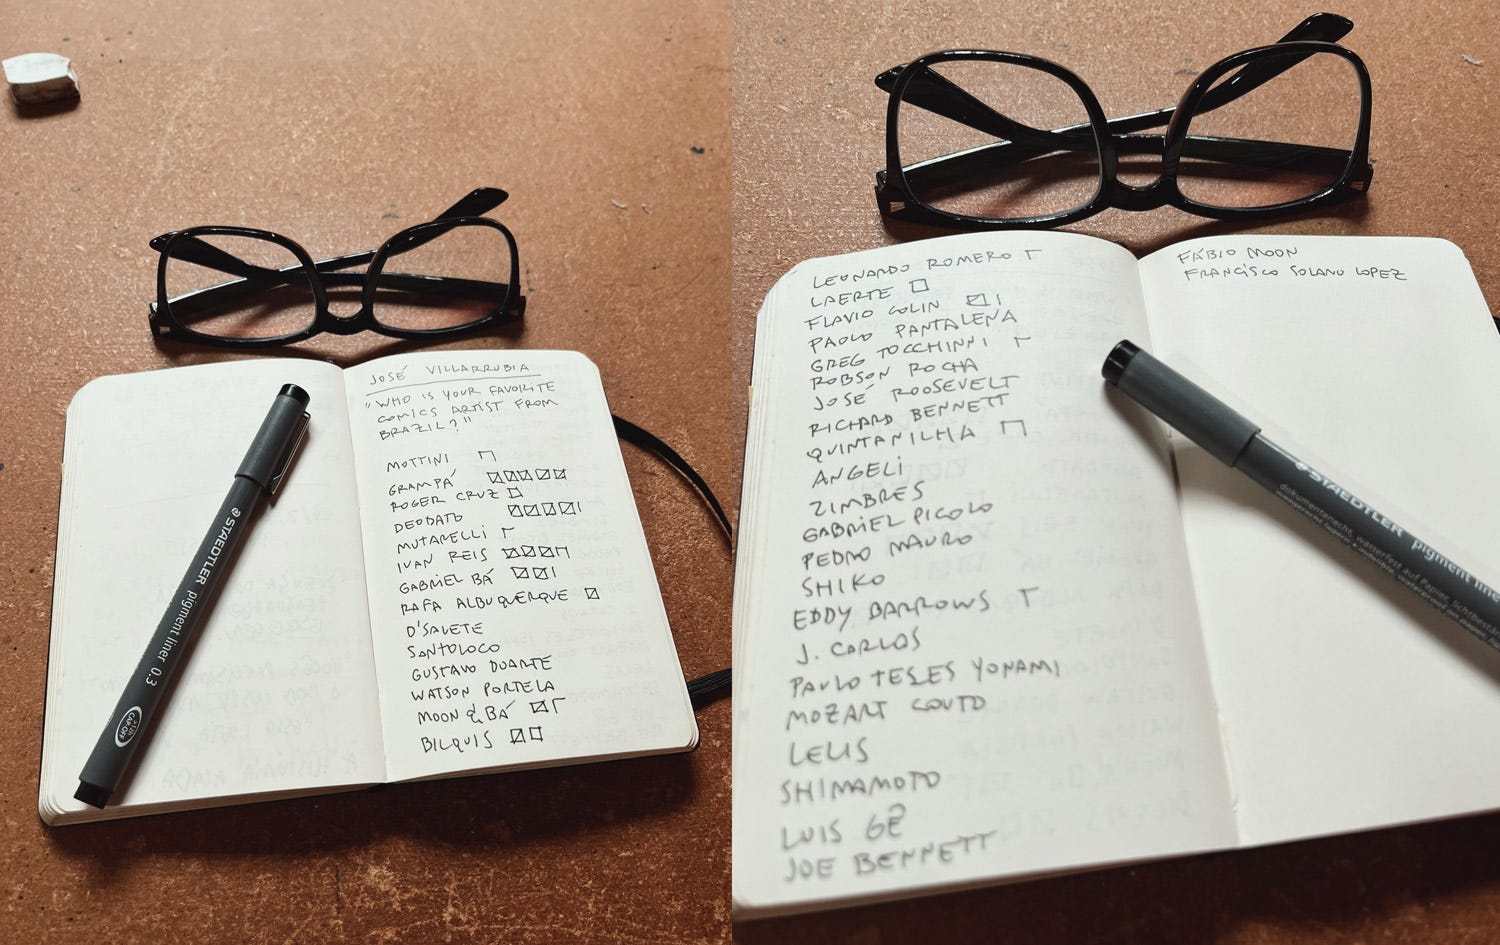 JOSÉ VILLARRUBIA
"WHO IS YOUR FAVORITE
COMICS ARTIST FROM
BRAZIL?"
MOTTINI
GRAMPÁ
ROGER CRUZ
DEODATO
MUTARELLI
IVAN REIS
GABRIEL BÁ
RAFA ALBUQUERQUE
D'SALETE
SANTOLOCO
GUSTAVO DUARTE
WATSON PORTELA
MOON & BÁ
BILQUIS
STAEDTLER pigment liner 0.3
CAP-OFF
LEONARDO ROMERO
LAERTE
FLAVIO COLIN
PAOLO PANTALENA
GREG TOCCHINNI
ROBSON ROCHA
JOSÉ ROOSEVELT
RICHARD BENNETT
QUINTANILHA
ANGELI
ZIMBRES
GABRIEL PICOLO
PEDRO MAURO
SHIKO
EDDY BARROWS
J. CARLOS
PAULO TELES YONAMI
MOZART COUTO
LELIS
SHIMAMOTO
LUIS GÊ
JOE BENNETT
FÁBIO MOON
FRANCISCO SOLANO LOPEZ
STAEDTLER pigment line
dokumentenecht, wasserfest auf Papier, lichtbestän